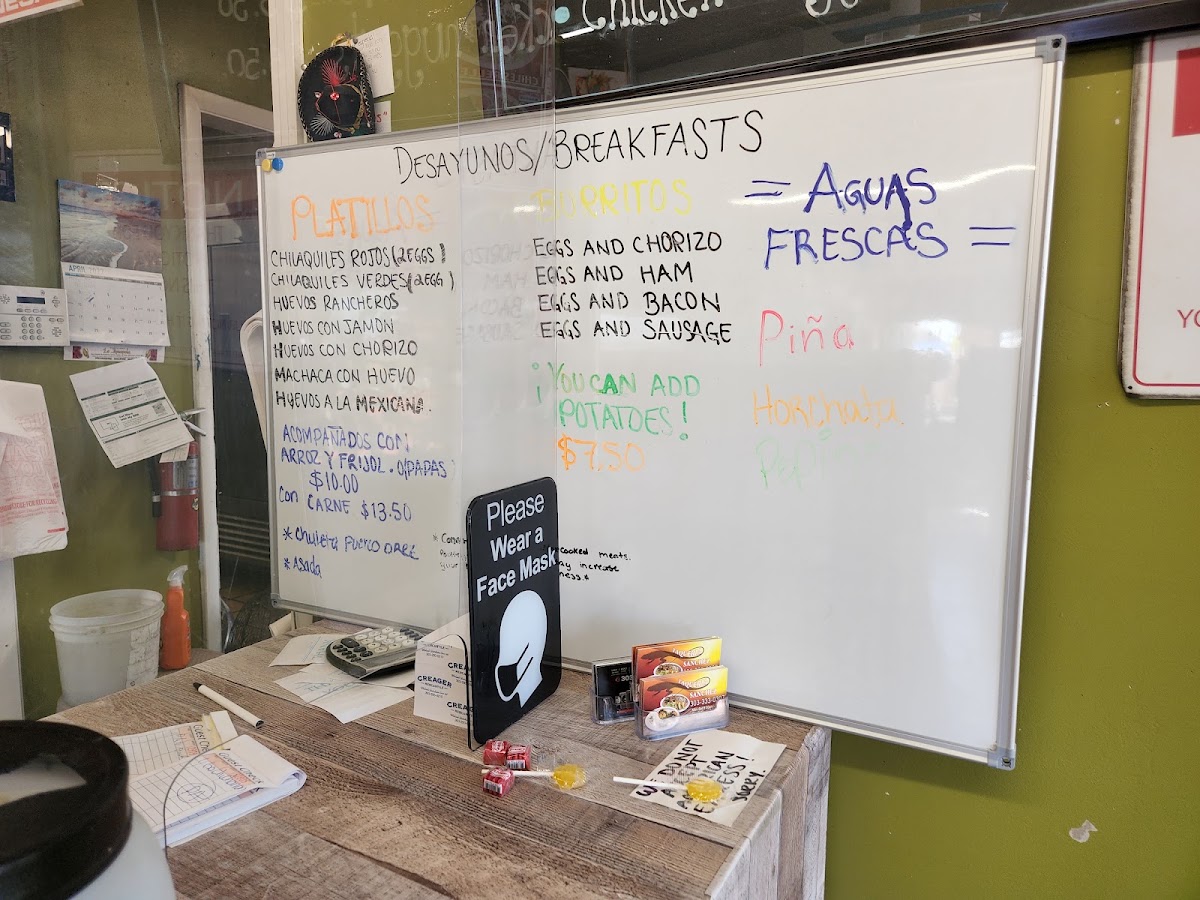 Chicken
DESAYUNOS/BREAKFASTS
PLATILLOS
CHILAQUILES ROJOS (2EGGS)
CHILAQUILES VERDES (2EGG)
HUEVOS RANCHEROS
HUEVOS CON JAMON
HUEVOS CON CHORIZO
MACHACA CON HUEVO
HUEVOS A LA MEXICANA.
ACOMPAÑADOS CON
ARROZ Y FRIJOL. O/PAPAS
$10.00
CON CARNE $13.50
* Chuleta PUERCO ORRE
* ASADA
BURRITOS
EGGS AND CHORIZO
EGGS AND HAM
EGGS AND BACON
EGGS AND SAUSAGE
¡YOU CAN ADD
POTATOES!
$7.50
cooked meats.
increase
= AGUAS
FRESCAS =
Piña
Horchata
APRIL
Please
Wear a
Face Mask
CREAGER
SANCHEZ
303-333
Guest Check
WE DO NOT
ACCEPT
AMERICAN
EXPRESS!
SORRY.
YO